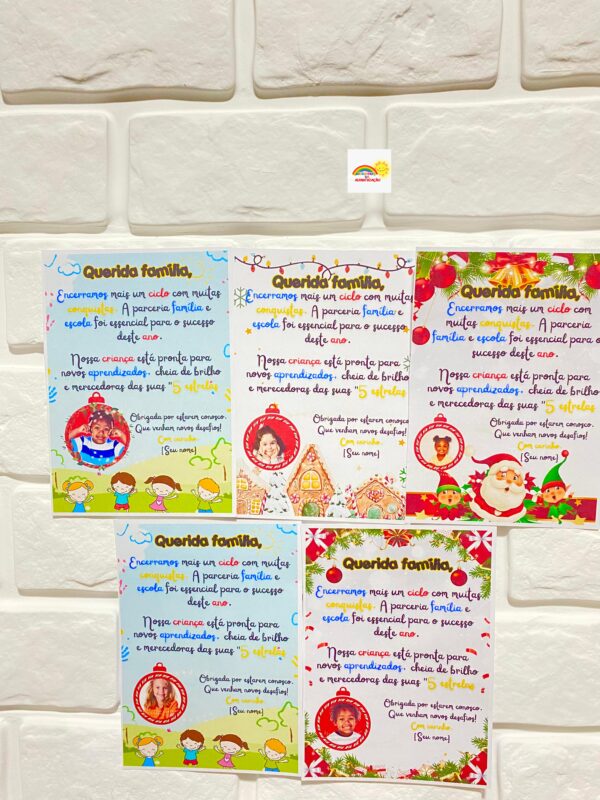 ALFABETIZAÇÃO
Querida família,
Encerramos mais um ciclo com muitas
conquistas. A parceria família e
escola foi essencial para o sucesso
deste ano.
Nossa criança está pronta para
novos aprendizados. cheia de brilho
e merecedoras das suas "5 estrelas
Obrigada por estarem conosco.
Que venham novos desafios!
Com carinho.
[Seu nome]
Querida família,
Encerramos mais um ciclo com muitas
conquistas. A parceria família e
escola foi essencial para o sucesso
deste ano.
Nossa criança está pronta para
novos aprendizados. cheia de brilho
e merecedoras das suas "5 estrelas
Obrigada por estarem conosco.
Que venham novos desafios!
Com carinho.
[Seu nome]
Querida família,
Encerramos mais um ciclo com
muitas conquistas. A parceria
família e escola foi essencial para o
sucesso deste ano.
Nossa criança está pronta para
novos aprendizados. cheia de brilho
e merecedoras das suas "5 estrelas
Obrigada por estarem conosco.
Que venham novos desafios!
Com carinho.
[Seu nome]
Querida família,
Encerramos mais um ciclo com muitas
conquistas. A parceria família e
escola foi essencial para o sucesso
deste ano.
Nossa criança está pronta para
novos aprendizados. cheia de brilho
e merecedoras das suas "5 estrelas
Obrigada por estarem conosco.
Que venham novos desafios!
Com carinho.
[Seu nome]
Querida família,
Encerramos mais um ciclo com muitas
conquistas. A parceria família e
escola foi essencial para o sucesso
deste ano.
Nossa criança está pronta para
novos aprendizados. cheia de brilho
e merecedoras das suas "5 estrelas
Obrigada por estarem conosco.
Que venham novos desafios!
Com carinho.
[Seu nome]